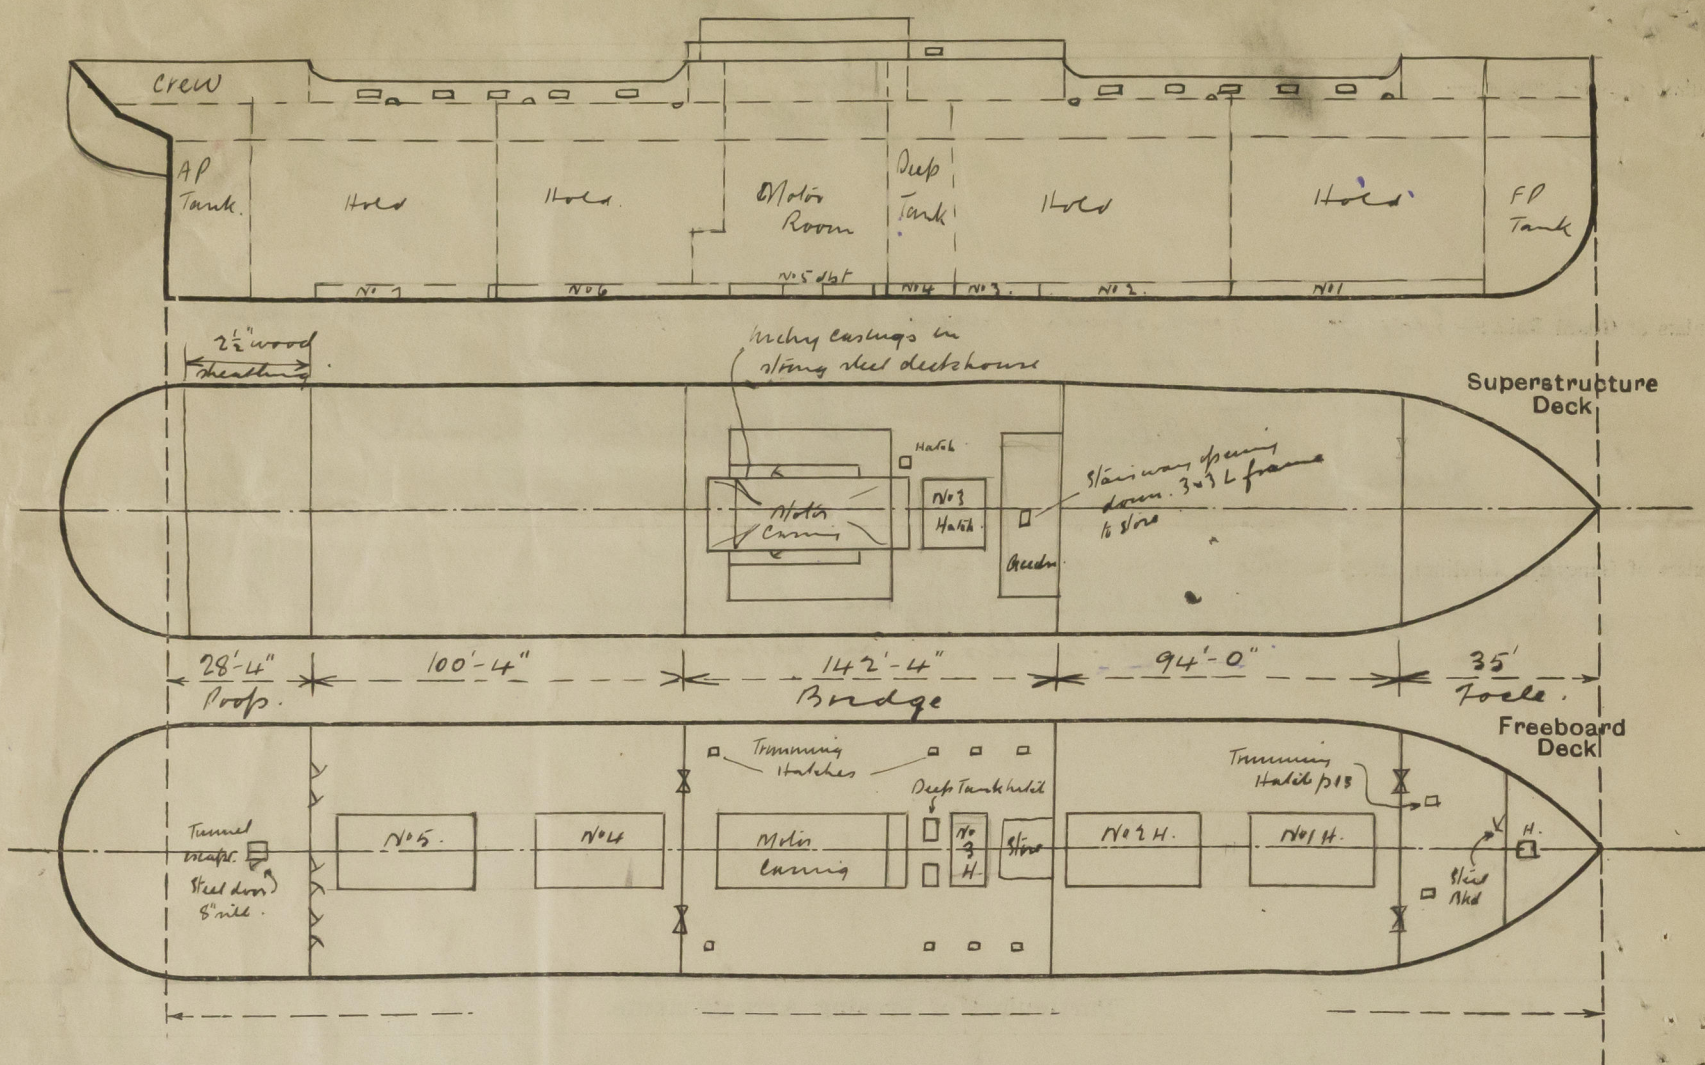 Crew
AP
Tank.
Hold
Hold.
Motor
Room
Deep
Tank
Hold
Hold
FP
Tank
No 7
No 6
No 5 dbt
No 4
No 3.
No 2.
No 1
2½" wood
sheathing
Mchy casings in
strong steel deckhouse
Superstructure
Deck
Hatch
No 3
Hatch.
Motor
Casing
Stairway opening
down. 3x3 L frame
to store
28'-4"
100'-4"
142'-4"
94'-0"
35'
Poop.
Bridge
Focle.
Freeboard
Deck
Trimming
Hatches
Trimming
Hatch p&s
Deep Tank hatch
Tunnel
escape.
Steel door
8" sill.
No 5.
No 4
Motor
Casing
No
3
H.
Store
No 2 H.
No 1 H.
Steel
Bkd
H.